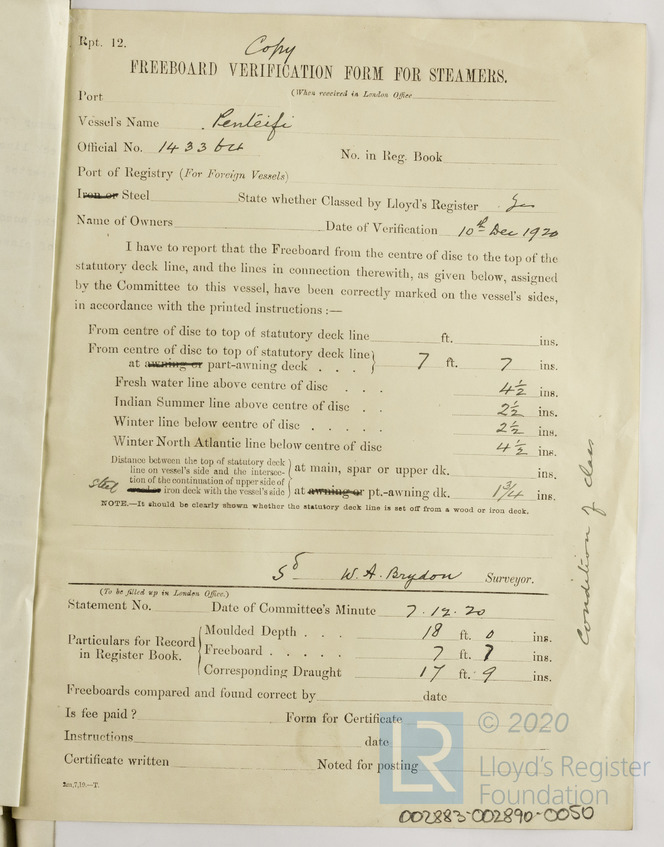 Rpt. 12.
Copy
FREEBOARD VERIFICATION FORM FOR STEAMERS.
Port (When received in London Office
Vessel's Name Penteifi
Official No. 143364 No. in Reg. Book
Port of Registry (For Foreign Vessels)
Iron or Steel State whether Classed by Lloyd's Register Yes
Name of Owners Date of Verification 10th Dec 1920
I have to report that the Freeboard from the centre of disc to the top of the
statutory deck line, and the lines in connection therewith, as given below, assigned
by the Committee to this vessel, have been correctly marked on the vessel's sides,
in accordance with the printed instructions :—
From centre of disc to top of statutory deck line ft. ins.
From centre of disc to top of statutory deck line
at awning or part-awning deck . . . 7 ft. 7 ins.
Fresh water line above centre of disc . . . 4½ ins.
Indian Summer line above centre of disc . . 2½ ins.
Winter line below centre of disc . . . . . 2½ ins.
Winter North Atlantic line below centre of disc 4½ ins.
Distance between the top of statutory deck
line on vessel's side and the intersec-
tion of the continuation of upper side of
steel iron deck with the vessel's side
at main, spar or upper dk. ins.
at awning or pt.-awning dk. 1¾ ins.
NOTE.—It should be clearly shown whether the statutory deck line is set off from a wood or iron deck.
Condition of class
Sd W. A. Brydon Surveyor.
(To be filled up in London Office.)
Statement No. Date of Committee's Minute 7.12.20
Particulars for Record
in Register Book.
Moulded Depth . . . 18 ft. 0 ins.
Freeboard . . . . . 7 ft. 7 ins.
Corresponding Draught 17 ft. 9 ins.
Freeboards compared and found correct by date
Is fee paid ? Form for Certificate
Instructions date
Certificate written Noted for posting
2m,7,19.—T.
LR
© 2020
Lloyd's Register
Foundation
002883-002890-0050